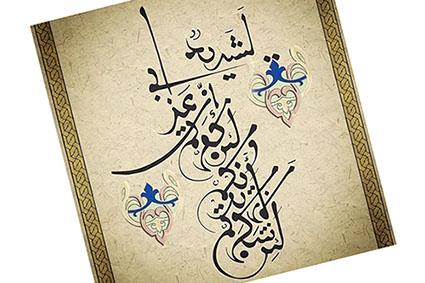 لئن شكرتم
لأزيدنكم
ولئن كفرتم
إن عذابي
لشديد